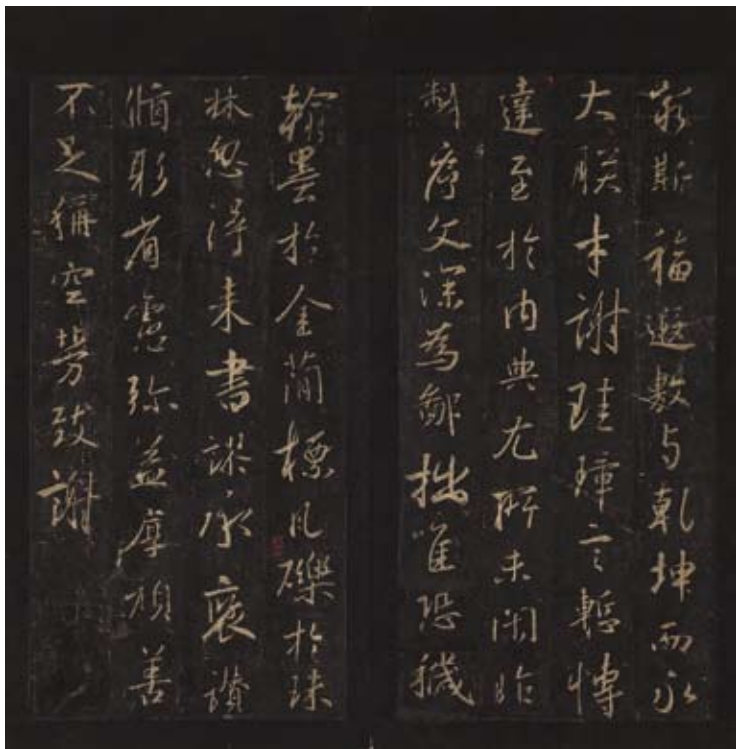 窮斯福遐敷与乾坤而永
大朕才謝珪璋言慙博
達至於內典尤所未閑昨
製序文深為鄙拙唯恐穢
翰墨於金簡標瓦礫於珠
林忽得来書謬承褒讚
循躬省慮弥益厚顏善
不足稱空勞致謝